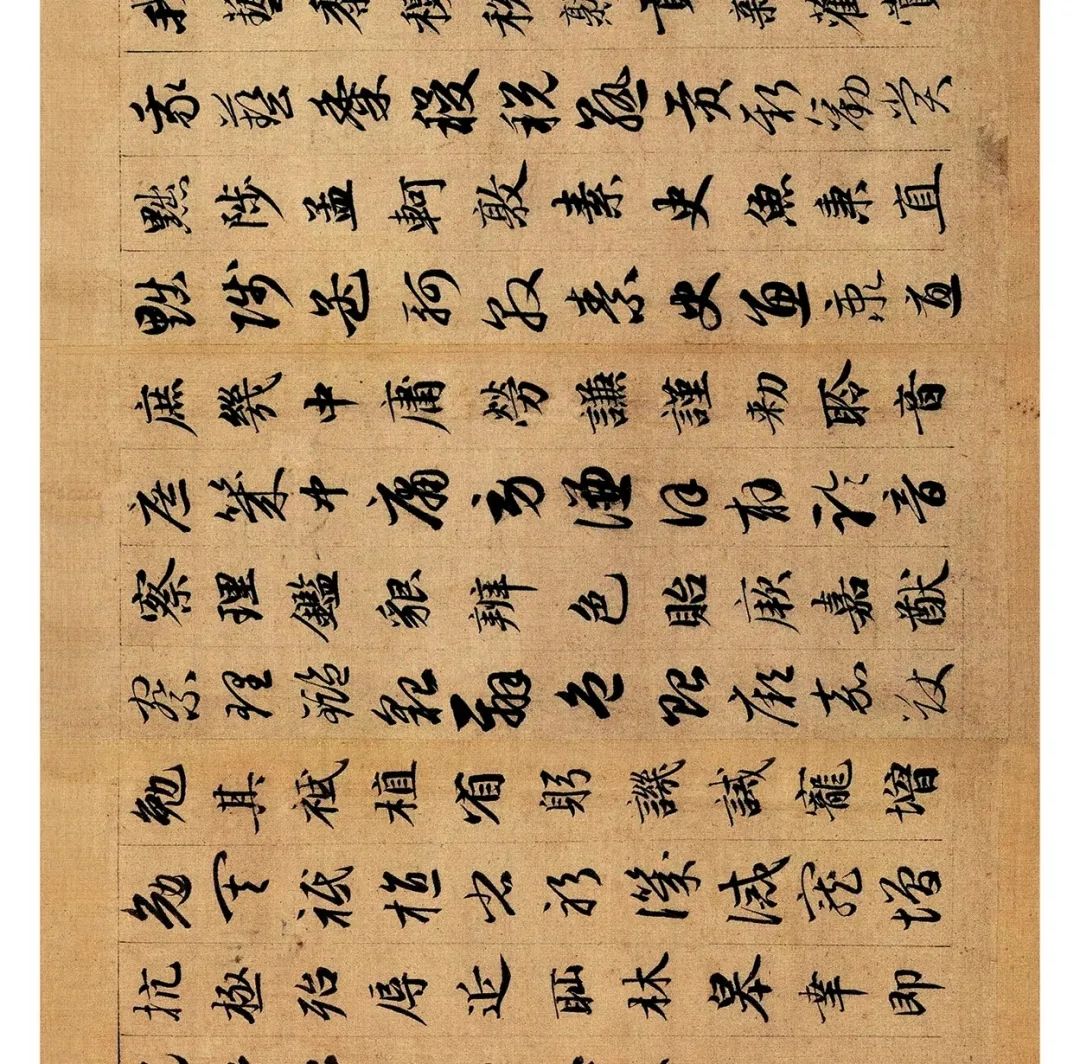 我藝黍稷稅熟貢新勸賞
我藝黍稷稅熟貢新勸賞
黜陟孟軻敦素史魚秉直
黜陟孟軻敦素史魚秉直
庶幾中庸勞謙謹勑聆音
庶幾中庸勞謙謹勑聆音
察理鑑貌辨色貽厥嘉猷
察理鑑貌辨色貽厥嘉猷
勉其祗植省躬譏誡寵增
勉其祗植省躬譏誡寵增
抗極殆辱近恥林皋幸即